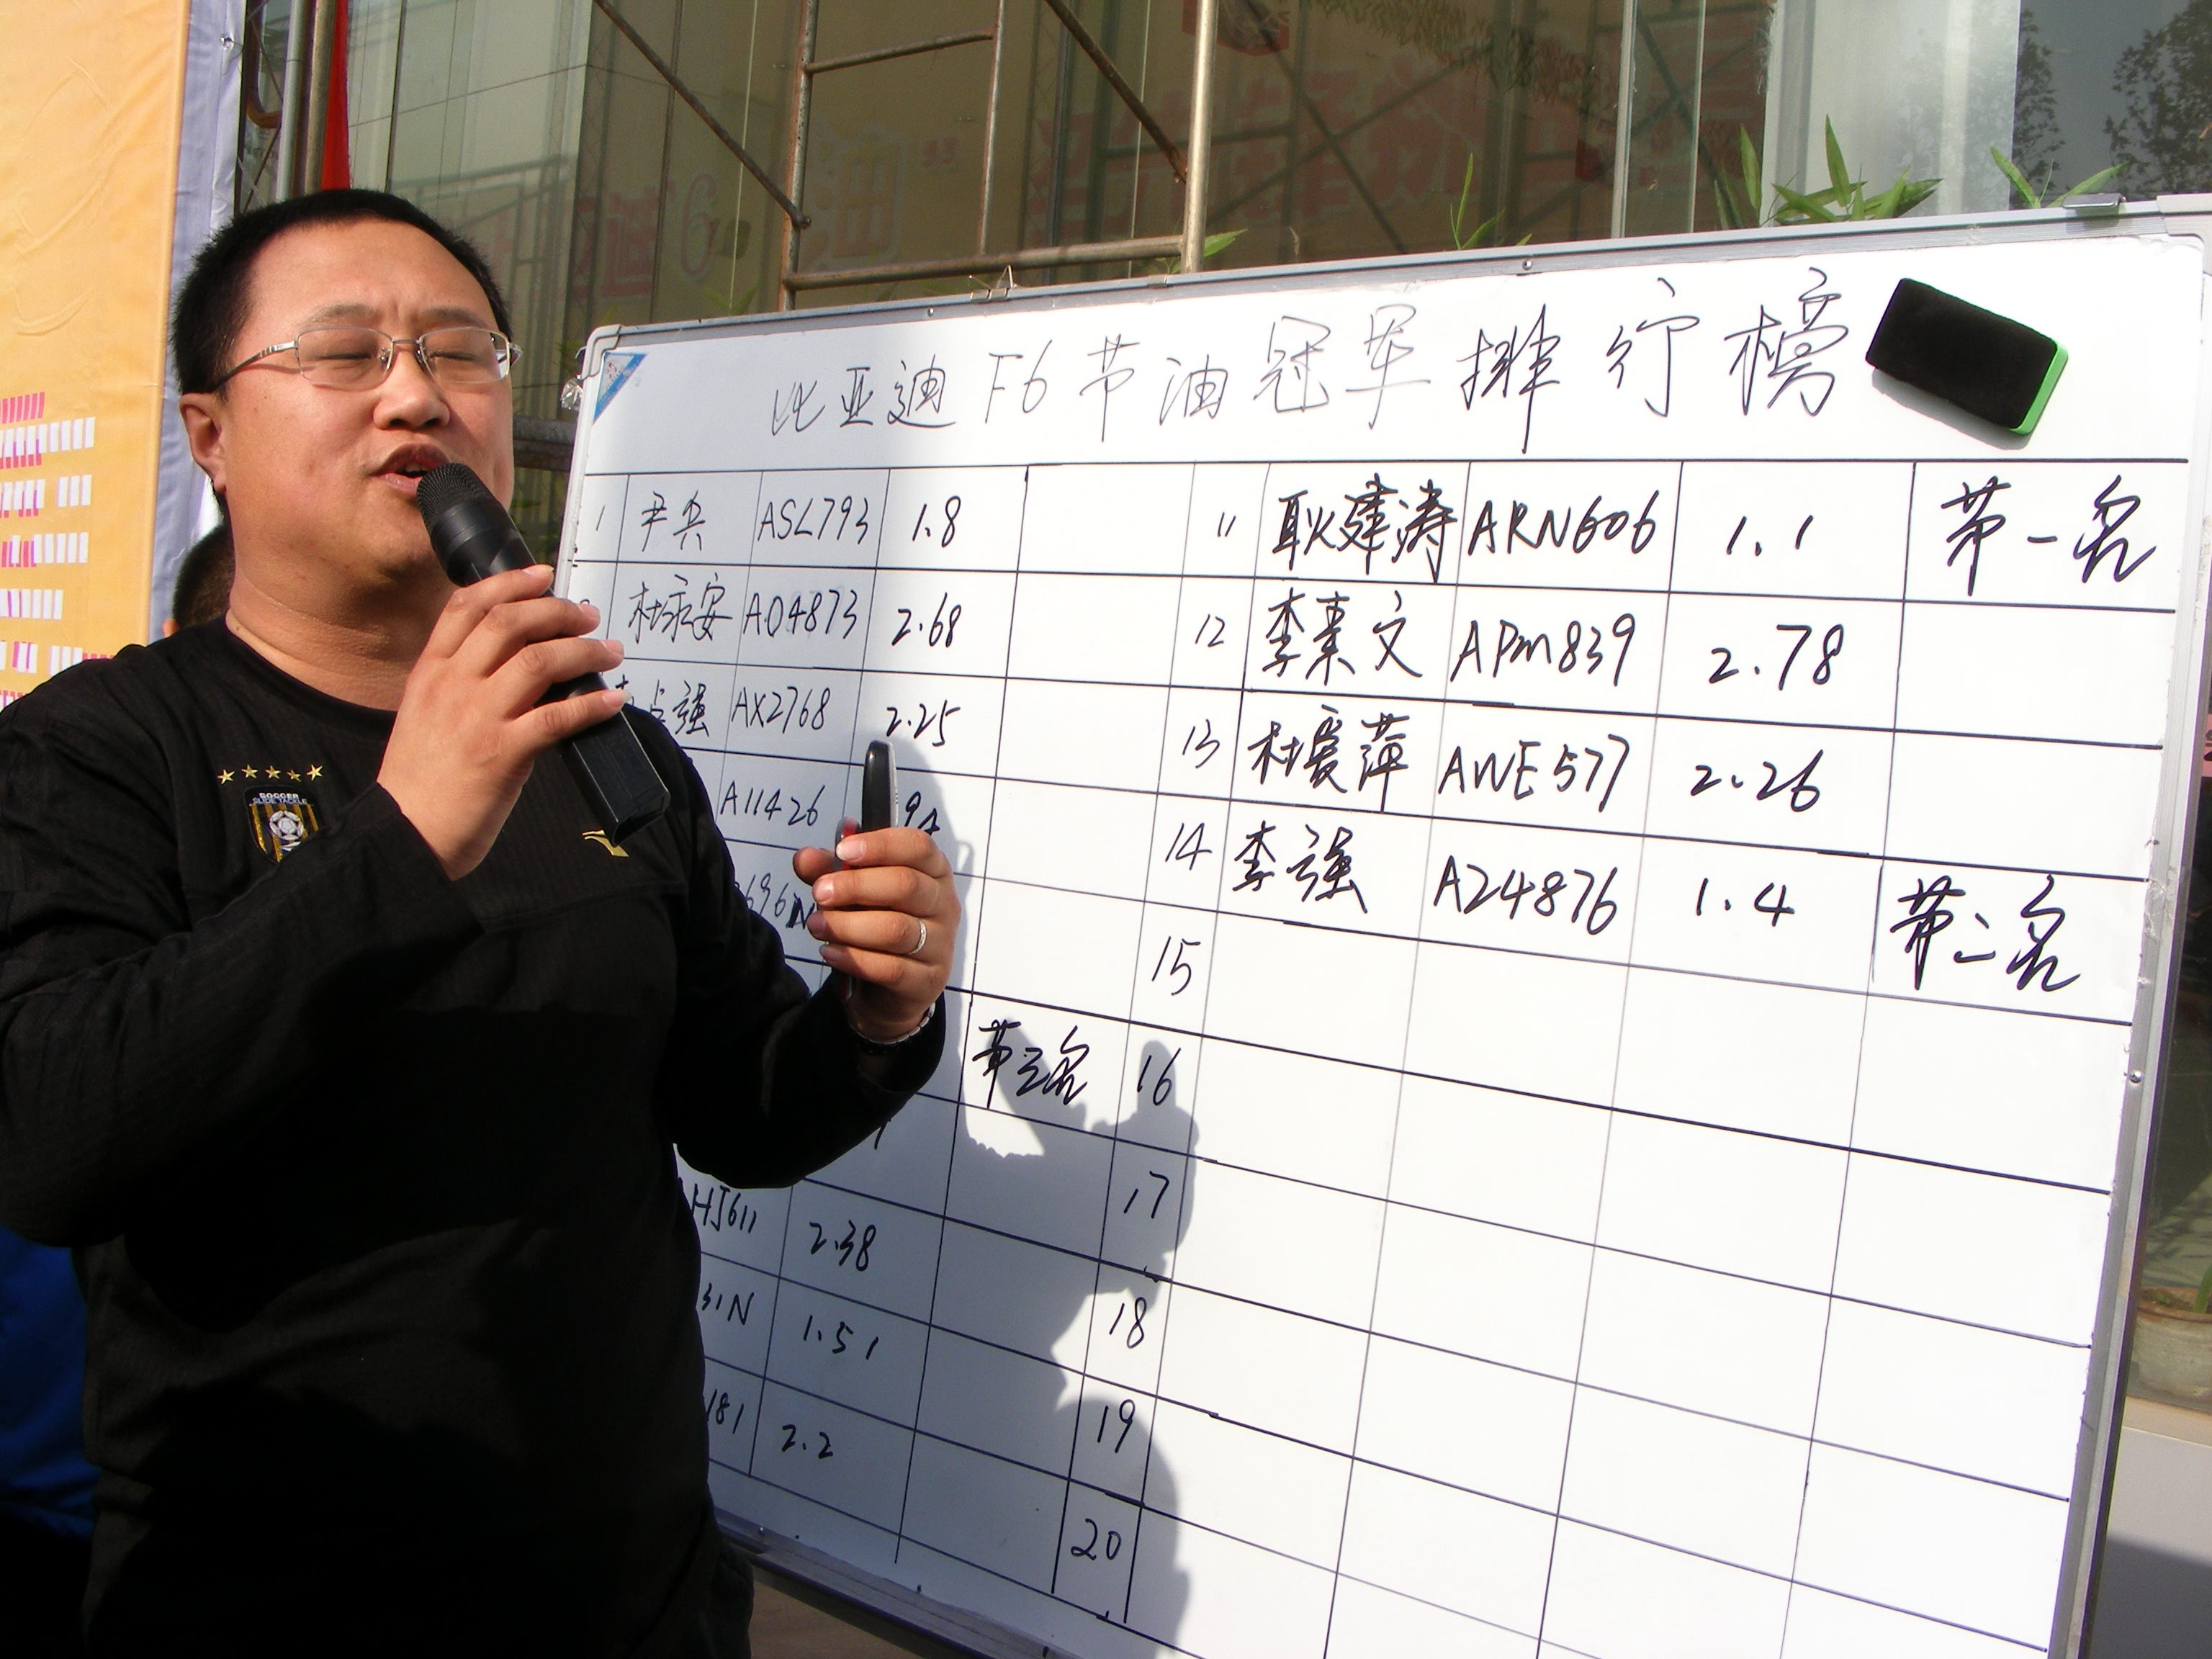 比亚迪F6节油冠军排行榜
1 尹兵 ASL793 1.8 11 耿建涛 ARN606 1.1 第一名
杜永安 A04873 2.68 12 李素文 APM839 2.78
占强 AX2768 2.25 13 杜爱萍 AWE577 2.26
A11426 94 14 李强 A24876 1.4 第二名
696N 15
第三名 16
17
HJ611 2.38 18
31N 1.51 19
181 2.2 20
SOCCER
SLIDE TACKLE